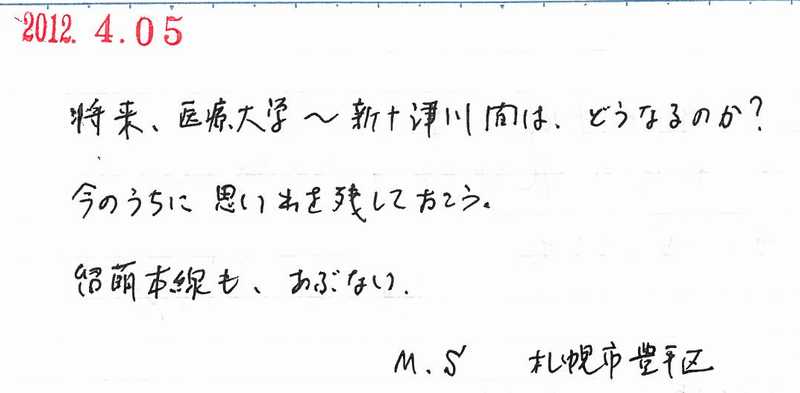 2012. 4.05
将来、医療大学〜新十津川間は、どうなるのか?
今のうちに思い出を残しておこう。
留萌本線も、あぶない.
M.S 札幌市豊平区